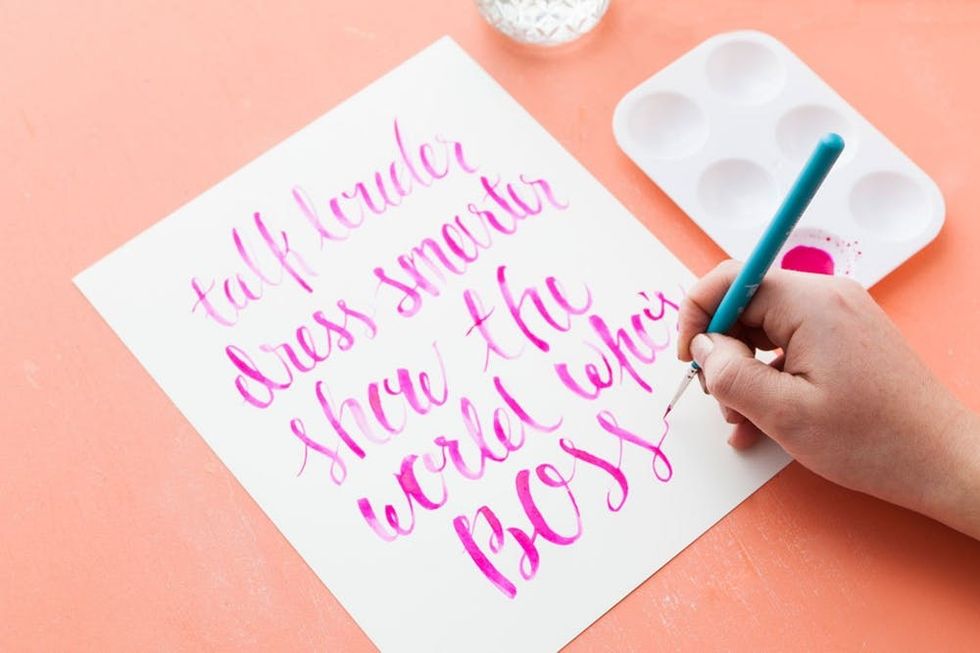 talk louder
dress smarter
show the
world who's
BOSS